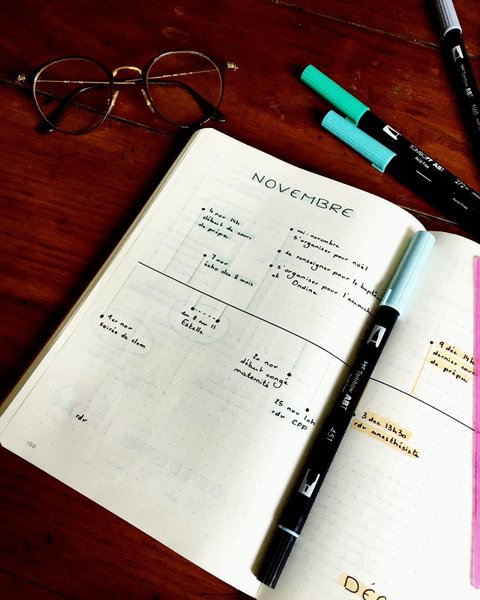 NOVEMBRE
4 nov 14h
début de cours
de prépa
7 nov
écho des 8 mois
mi-novembre
s'organiser pour noël
se renseigner pour le baptême
s'organiser pour l'accouche
et Ondine
1er nov
soirée de clem
du 8 au 11
Estelle
20 nov
début congé
maternité
25 nov 10h
rdv CPP
rdv
156
9 déc 14h
dernier cours
de prépa
3 dec 13h30
rdv anesthésiste
DÉC
TOMBOW ABT
Tombow ABT
451